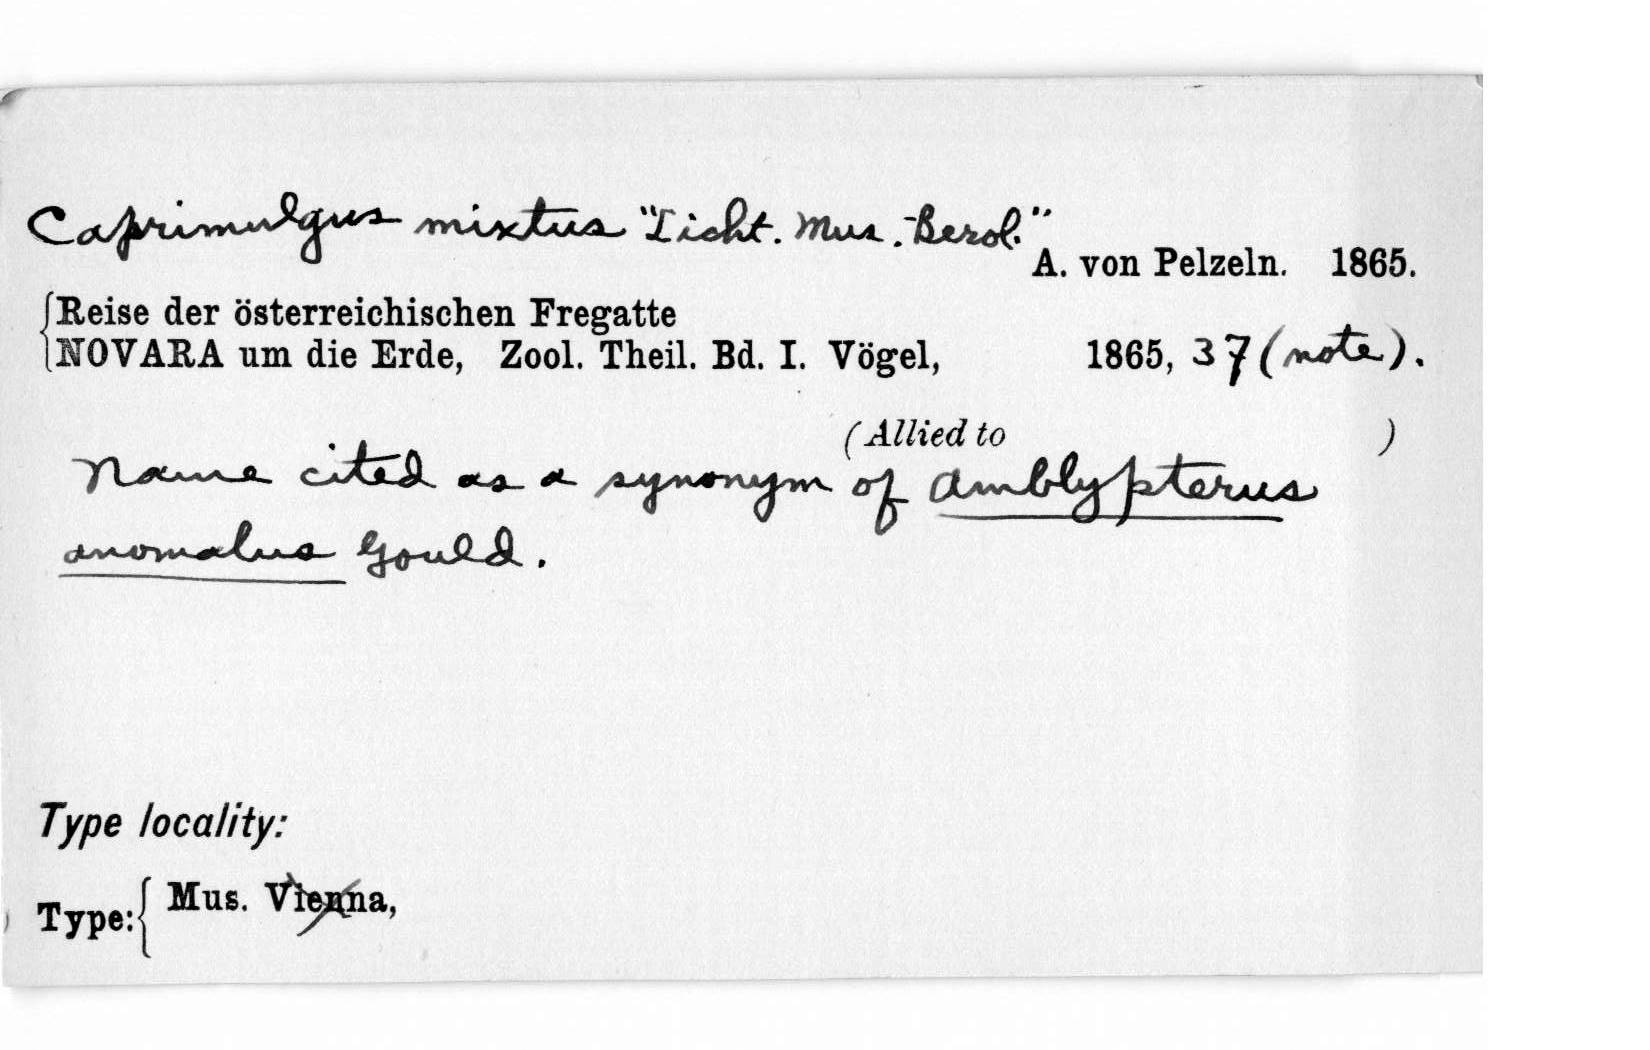 Caprimulgus mixtus "Licht. Mus. Berol."
A. von Pelzeln. 1865.
Reise der österreichischen Fregatte
NOVARA um die Erde, Zool. Theil. Bd. I. Vögel, 1865, 37 (note).
(Allied to )
Name cited as a synonym of Amblypterus
anomalus Gould.
Type locality:
Type: { Mus. Vienna,